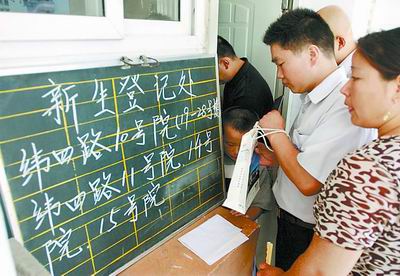 新生登记处
纬四路10号院(19-28号楼
纬四路11号院 14号
院.15号院